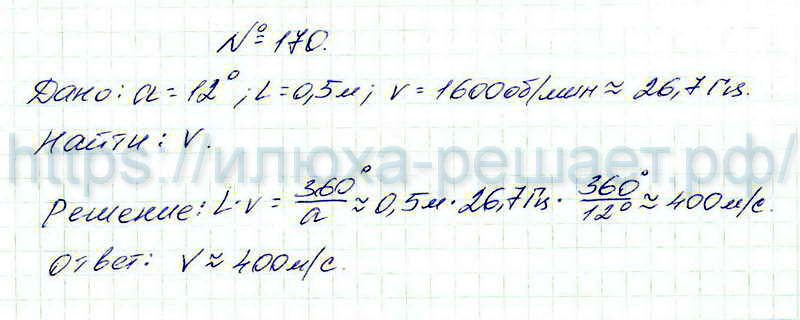 № 170.
Дано: a = 12°; L = 0,5м; v = 1600об/мин ≈ 26,7Гц.
Найти: v.
https://илюха-решает.рф/
Решение: L·v = 360°/a ≈ 0,5м · 26,7Гц · 360°/12° ≈ 400м/с.
Ответ: v ≈ 400м/с.